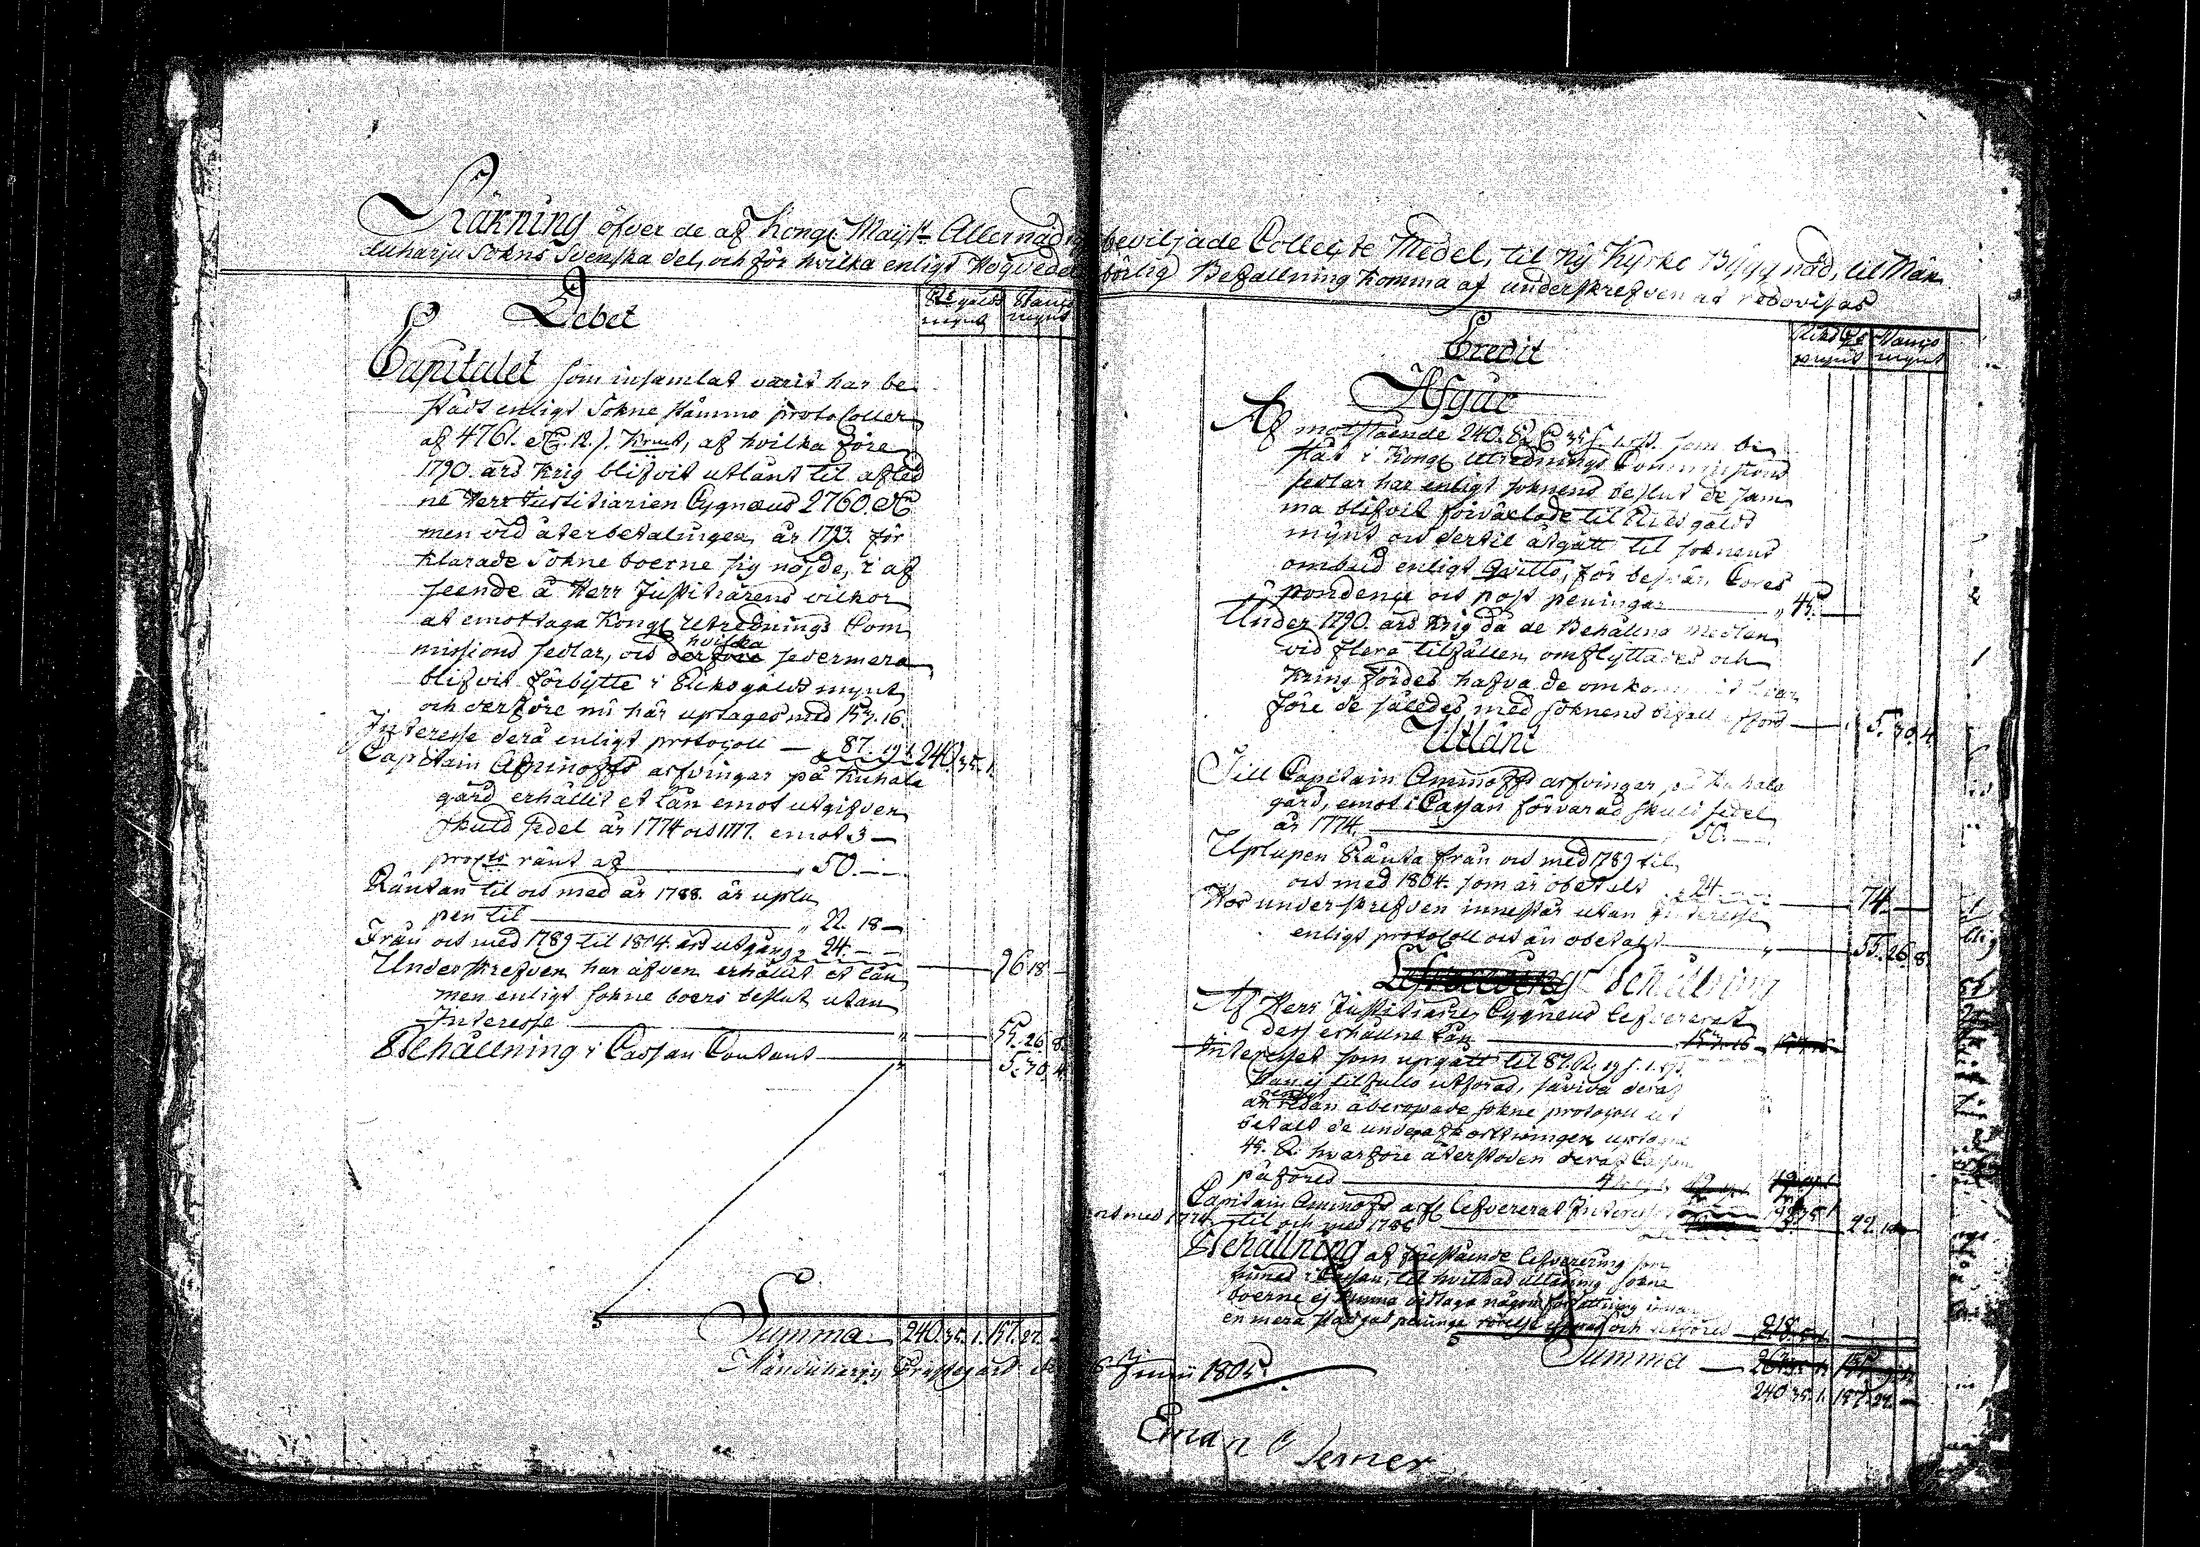 Räkning öfver de af Kongl. Maij:tt Allernådigst beviljade Collecte Medel, til Ny Kyrko Byggnad, til Män
tuharju Sokns Svenska del, och för hvilka enligt Högvederbörlig Befallning komma af underskrefven at redovisas
Debet
Rs gälds mynt
Banco mynt
Capitalet som insamlat varit har be
stådt enligt Sokne stämmo protocoller
af 4761. 12. kmt, af hvilka före
1790. års krig blifvit utlånt til afled
ne Herr Justitiarien Cygnæus 2760.
men vid återbetalningen år 1793. för
klarade Sokne boerne sig nöjde, i af
seende å Herr Justitiarens vilkor
at emottaga Kongl Utrednings Com
missions sedlar, och hvilka derföre sedermera
blifvit förbytte i Riksgälds mynt
och derföre nu här uptages med 153.16.
Interesse derå enligt protocoll — 87. 19. 1. 240.35.1.
Capitain Aminoffs arfvingar på Kuhala
gård erhållit et lån emot utgifven
skuld sedel år 1774 och 1777. emot 3 —
procto ränt af — 50. — —
Räntan til och med år 1788. är uplu
pen til — 22. 18 —
Från och med 1789 til 1804. års utgång 24. — —
96 18 —
Underskrefven har äfven erhållit et lån
men enligt sokne boers beslut utan
Interesse — 55. 26. 8.
Behållning i Cassan Contant — 5. 30. 4.
Summa — 240.35.1. 157.22. —
Mändüharju Prästegård den
Credit
Riks Gs mynt
Banco mynt
Afgår
Af motstående 240. 35 s. 1 rst. som be
stått i Kongl Utrednings Commissions
sedlar har enligt soknens beslut de sam
ma blifvit förväxlade til Riksgälds
mynt och dertil åtgått til soknens
ombud enligt Qvitto, för besvär, Cores
pondence och post peningar — 45. —
Under 1790. års krig då de Behållna medlen
vid flera tillfällen omflyttades och
kring fördes hafva de omkommit hvar
före de således med soknens bifall afförd — 5. 30. 4.
Utlånt
Till Capitain Aminoffs arfvingar på Kuhala
gård, emot i Cassan förvarad skuld sedel
år 1774. — 50. — —
Uplupen Ränta från och med 1789 til
och med 1804. som är obetalt — 24. — — 74. —
Hos underskrefven innestår utan Interesse
enligt protocoll och än obetalt — 55. 26. 8.
Behållning
Af Herr Justitiarien Cygneus lefvererat
dess erhållne lån — 153.16
Interesset som upgått til 87. 19 s. 1. rst.
kan ej tilfullo utföras, såvida deraf
enligt
åberopade sokne protocoll ut
betalt de under afkortningen uptagne
45. hvarföre återstoden deraf Cassan
påföres
Capitain Aminoffs arf. lefvererat Interesse
och med 1774. til och med 1788 — 22. 18 —
Behållning af förestående lefverering som
finnes i Cassan, til hvilkas utlåning sokne
boerne ej kunna vidtaga någon författning innan
en mera stadgad peninge rörelse och utföres
Summa
240 35. 1. 157. 22. —
6 Junii 1805.
Eman C Serner